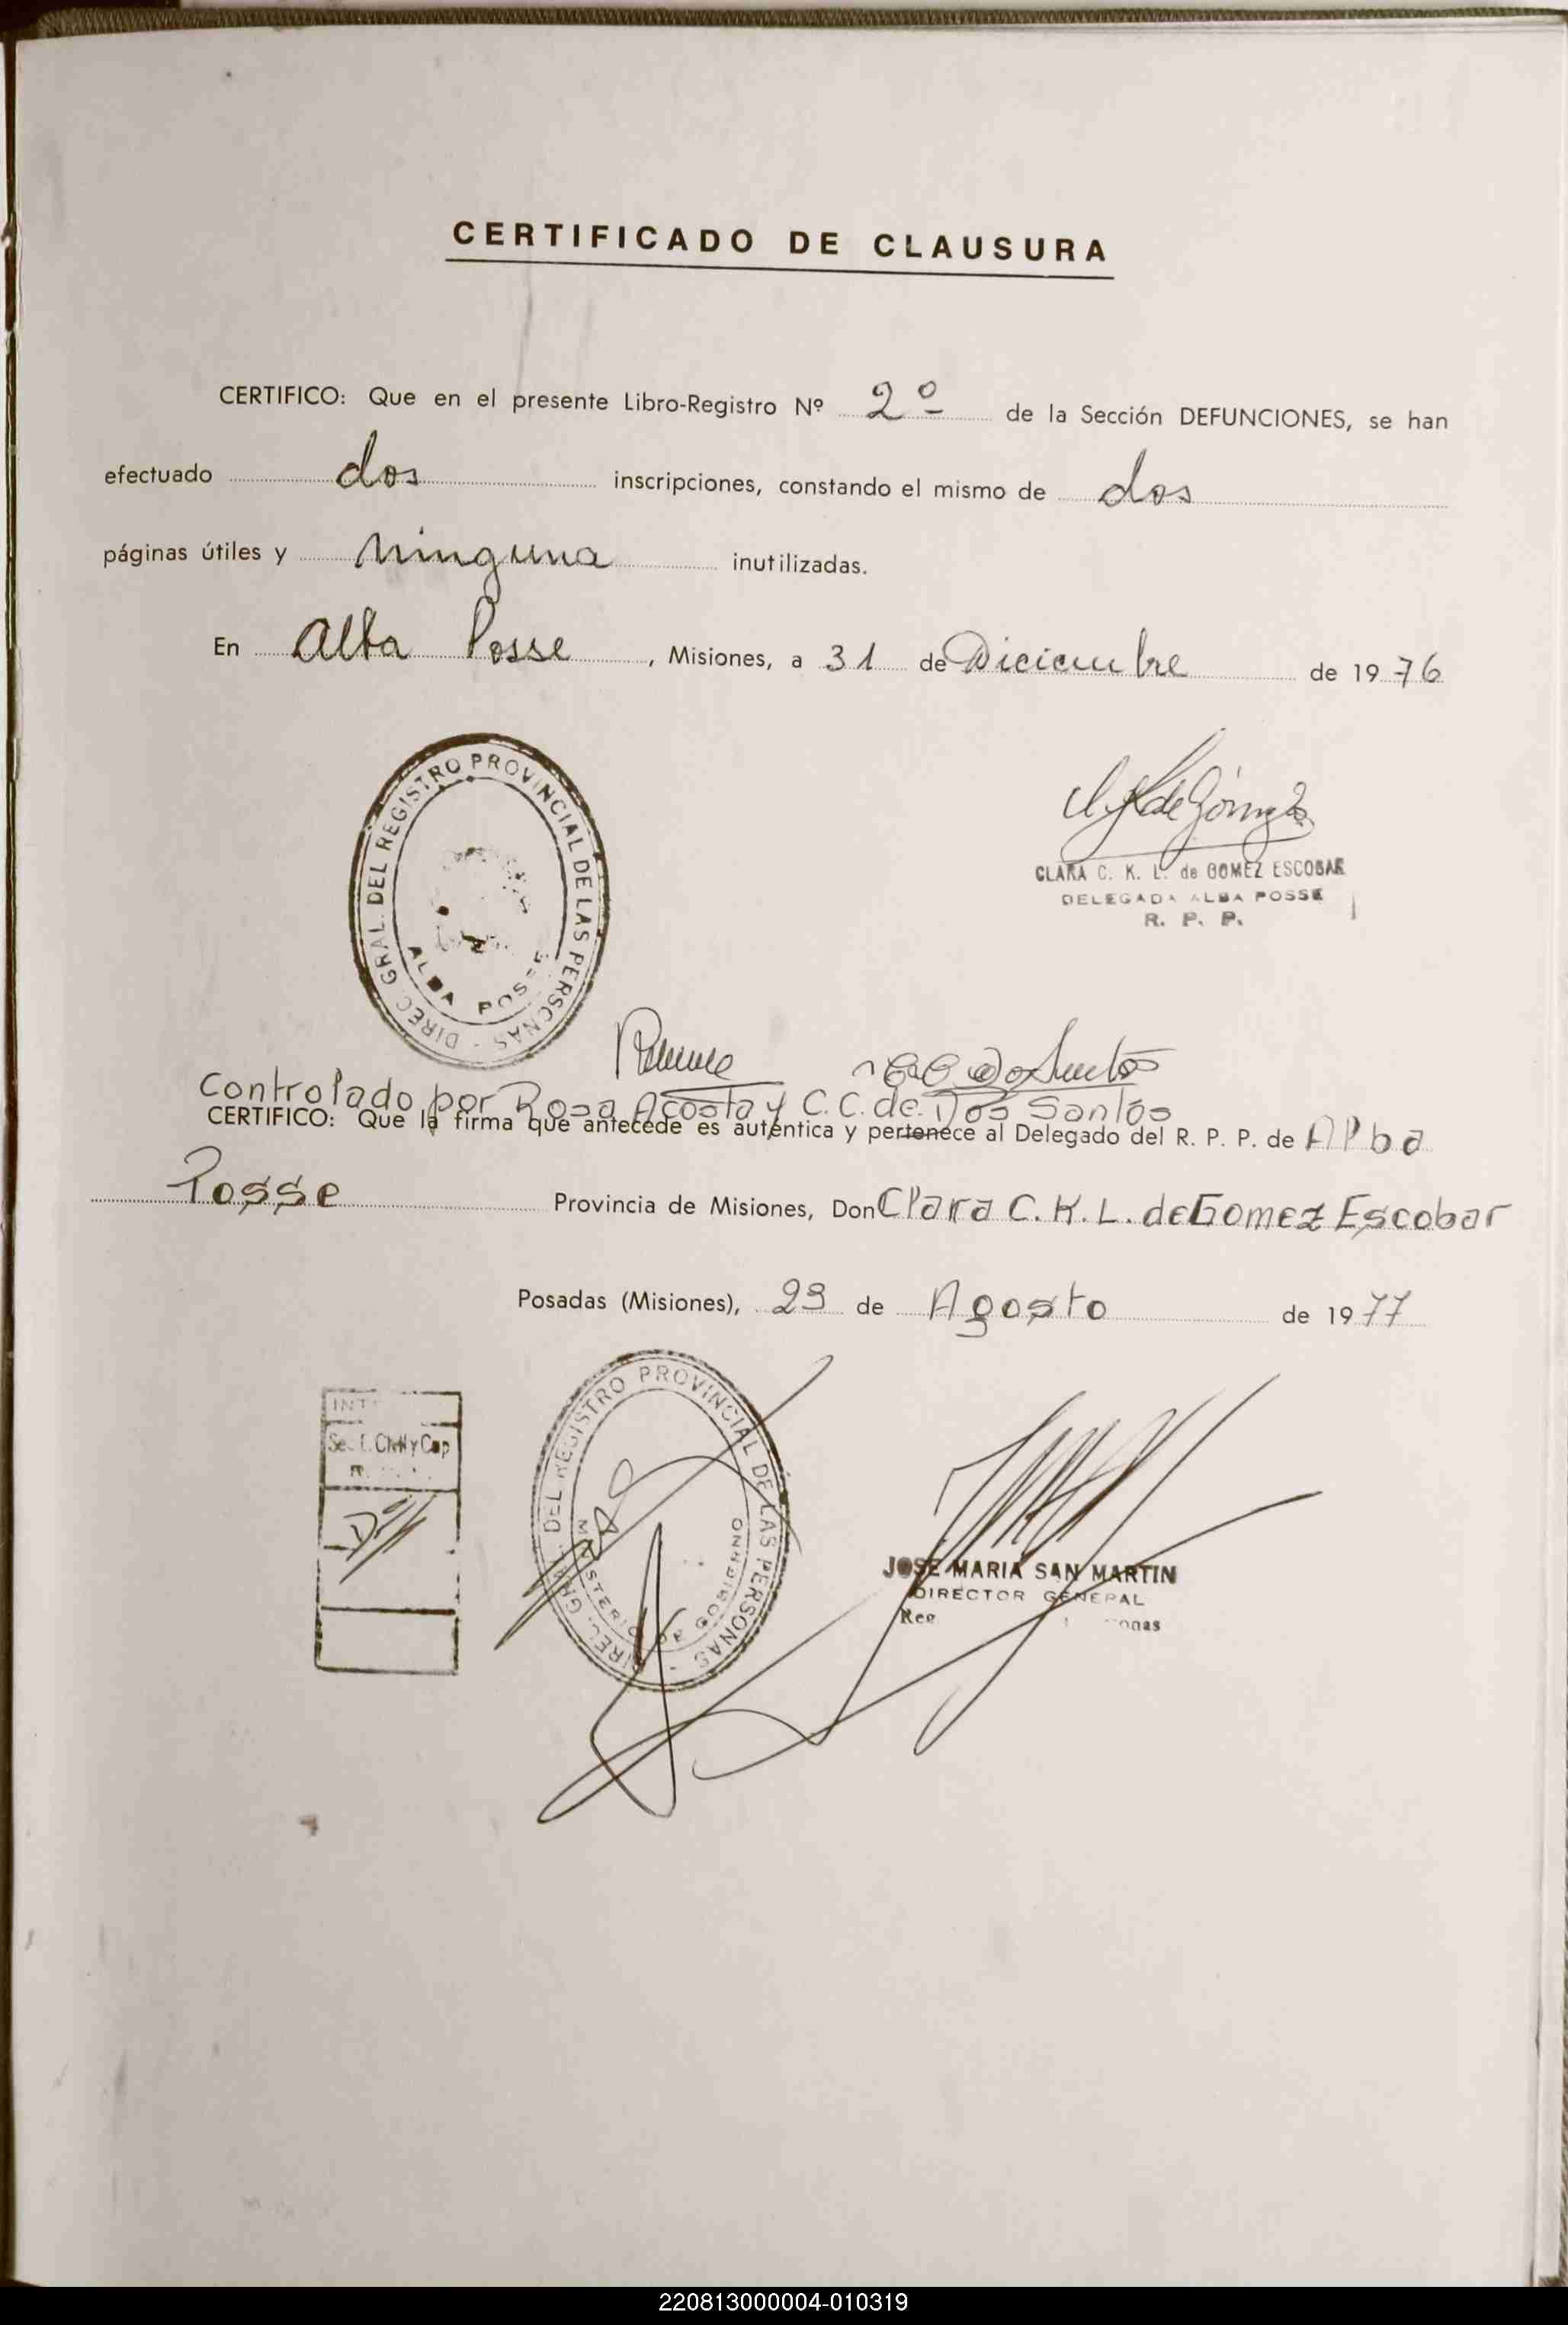 CERTIFICADO DE CLAUSURA
CERTIFICO: Que en el presente Libro-Registro Nº 2º de la Sección DEFUNCIONES, se han
efectuado dos inscripciones, constando el mismo de dos
páginas útiles y ninguna inutilizadas.
En Alba Posse, Misiones, a 31 de Diciembre de 1976
DIREC. GRAL. DEL REGISTRO PROVINCIAL DE LAS PERSONAS -
ALBA POSSE
CLARA C. K. L. de GOMEZ ESCOBAR
DELEGADA ALBA POSSE
R. P. P.
Controlado por Rosa Acosta y C. C. de Dos Santos
CERTIFICO: Que la firma que antecede es auténtica y pertenece al Delegado del R. P. P. de Alba
Posse Provincia de Misiones, Don Clara C. K. L. de Gomez Escobar
Posadas (Misiones), 29 de Agosto de 1977
DIREC. GRAL. DEL REGISTRO PROVINCIAL DE LAS PERSONAS -
MINISTERIO DE GOBIERNO
JOSE MARIA SAN MARTIN
DIRECTOR GENERAL
220813000004-010319